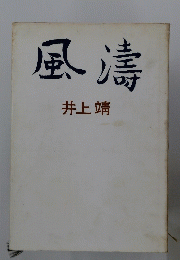 風濤
井上靖